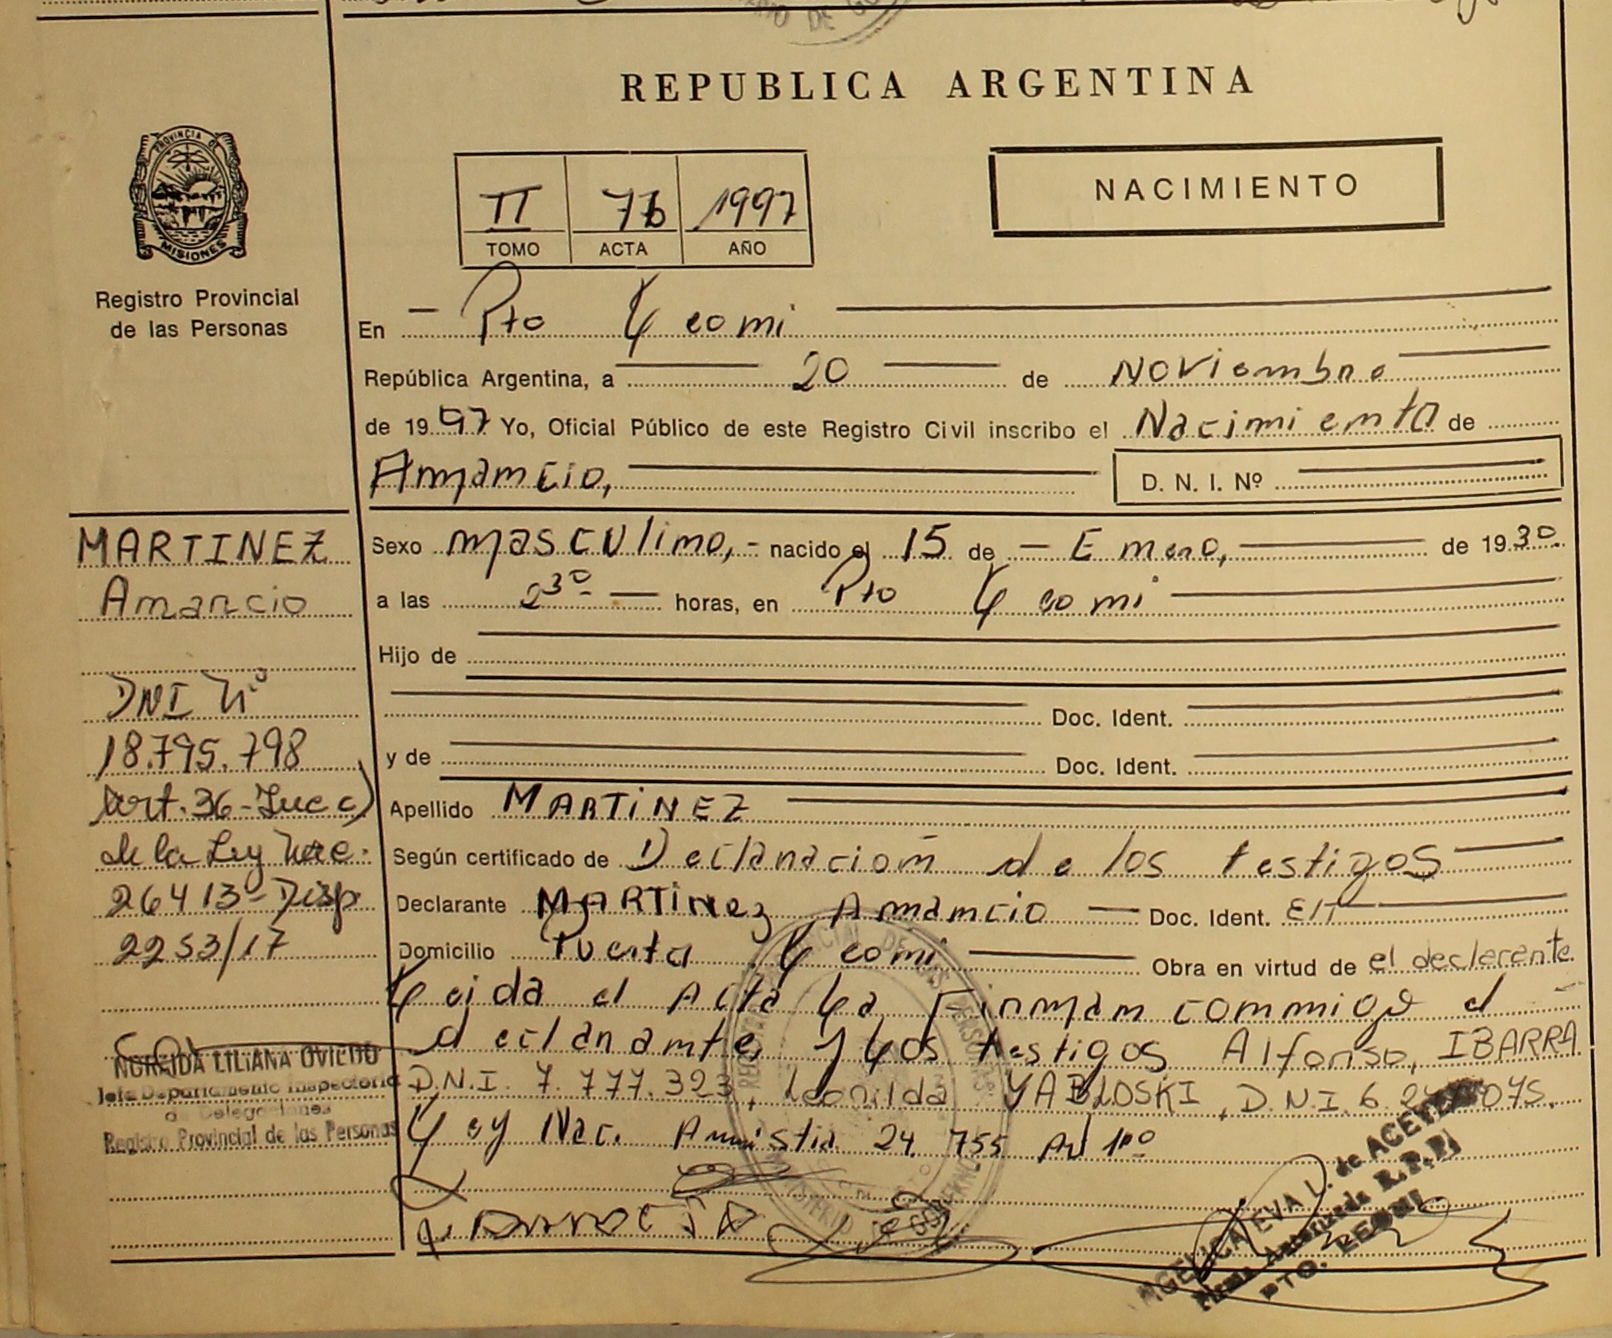 REPUBLICA ARGENTINA
PROVINCIA DE
MISIONES
Registro Provincial
de las Personas
II 76 1997
TOMO ACTA AÑO
NACIMIENTO
En Pto Leoni
República Argentina, a 20 de Noviembre
de 1997 Yo, Oficial Público de este Registro Civil inscribo el Nacimiento de
Amancio, D. N. I. Nº
MARTINEZ
Amancio
DNI Nº
18.795.798
Art. 36-Inc c)
de la Ley Nac.
26413- Disp
2253/17
NGREIDA LILIANA OVIEDO
Jefa Departamento Inspectoria
a Delegaciones
Registro Provincial de las Personas
Sexo masculino, - nacido el 15 de Enero, de 1930.
a las 23º horas, en Pto Leoni
Hijo de
Doc. Ident.
y de Doc. Ident.
Apellido MARTINEZ
Según certificado de Declaracion de los testigos
Declarante MARTINEZ Amancio Doc. Ident. EIT
Domicilio Puerto Leoni Obra en virtud de el declarante
Leida el Acta La Firman conmigo el
declarante y Los testigos Alfonso, IBARRA
D.N.I. 7.777.323, Leonilda YABLOSKI, D.N.I. 6. 075.
Ley Nac. Amnistia 24.755 Art 1º
ANGELICA EVA L. de ACEVEDO
Firma Autorizada R.P.P.
PTO. LEONI